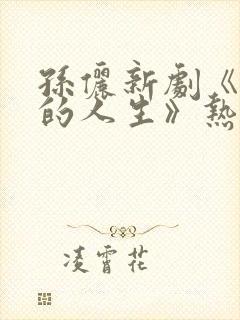 孫儷新劇《
的人生》熱
凌霄花